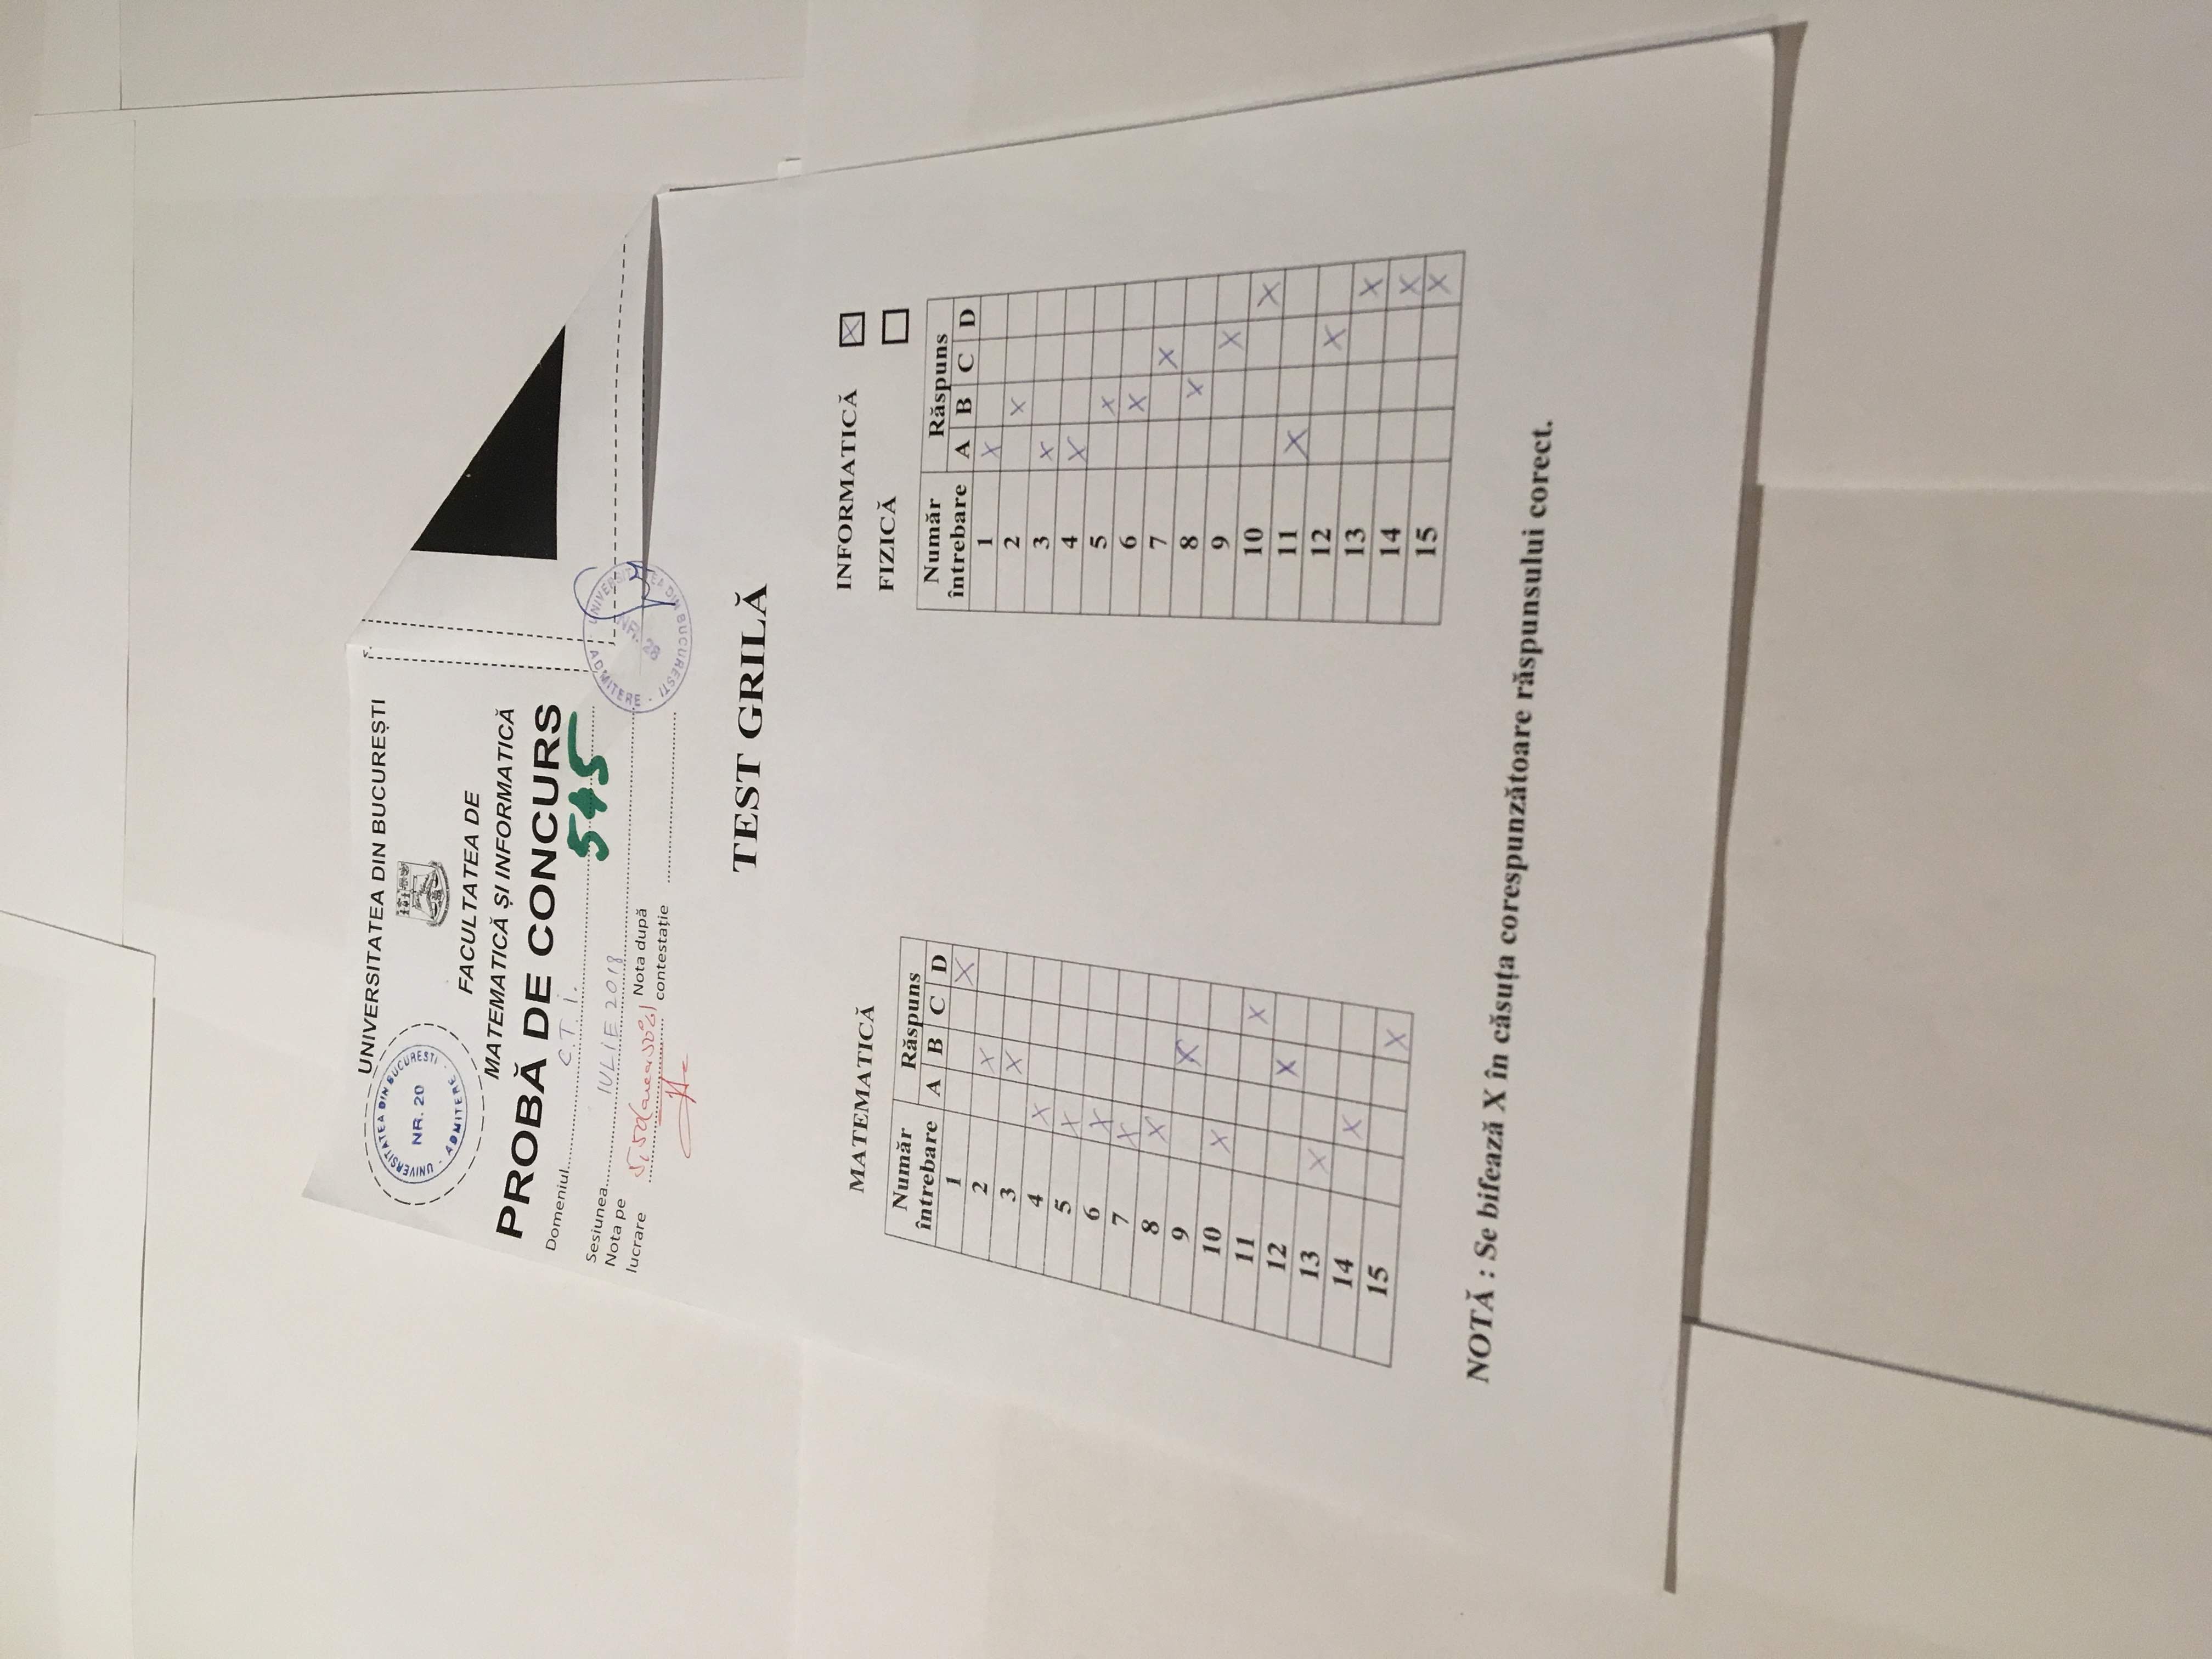 UNIVERSITATEA DIN BUCUREȘTI
UNIVERSITATEA DIN BUCURESTI
NR. 20
ADMITERE
FACULTATEA DE
MATEMATICĂ ȘI INFORMATICĂ
PROBĂ DE CONCURS
Domeniul C.T.I.
545
Sesiunea IULIE 2018
Nota pe lucrare 5,50
Nota după contestație
UNIVERSITATEA DIN BUCURESTI
NR. 28
ADMITERE
TEST GRILĂ
MATEMATICĂ
Număr întrebare Răspuns
A B C D
1 X
2 X
3 X
4 X
5 X
6 X
7 X
8 X
9 X
10 X
11 X
12 X
13 X
14 X
15 X
INFORMATICĂ X
FIZICĂ
Număr întrebare Răspuns
A B C D
1 X
2 X
3 X
4 X
5 X
6 X
7 X
8 X
9 X
10 X
11 X
12 X
13 X
14 X
15 X
NOTĂ : Se bifează X în căsuța corespunzătoare răspunsului corect.